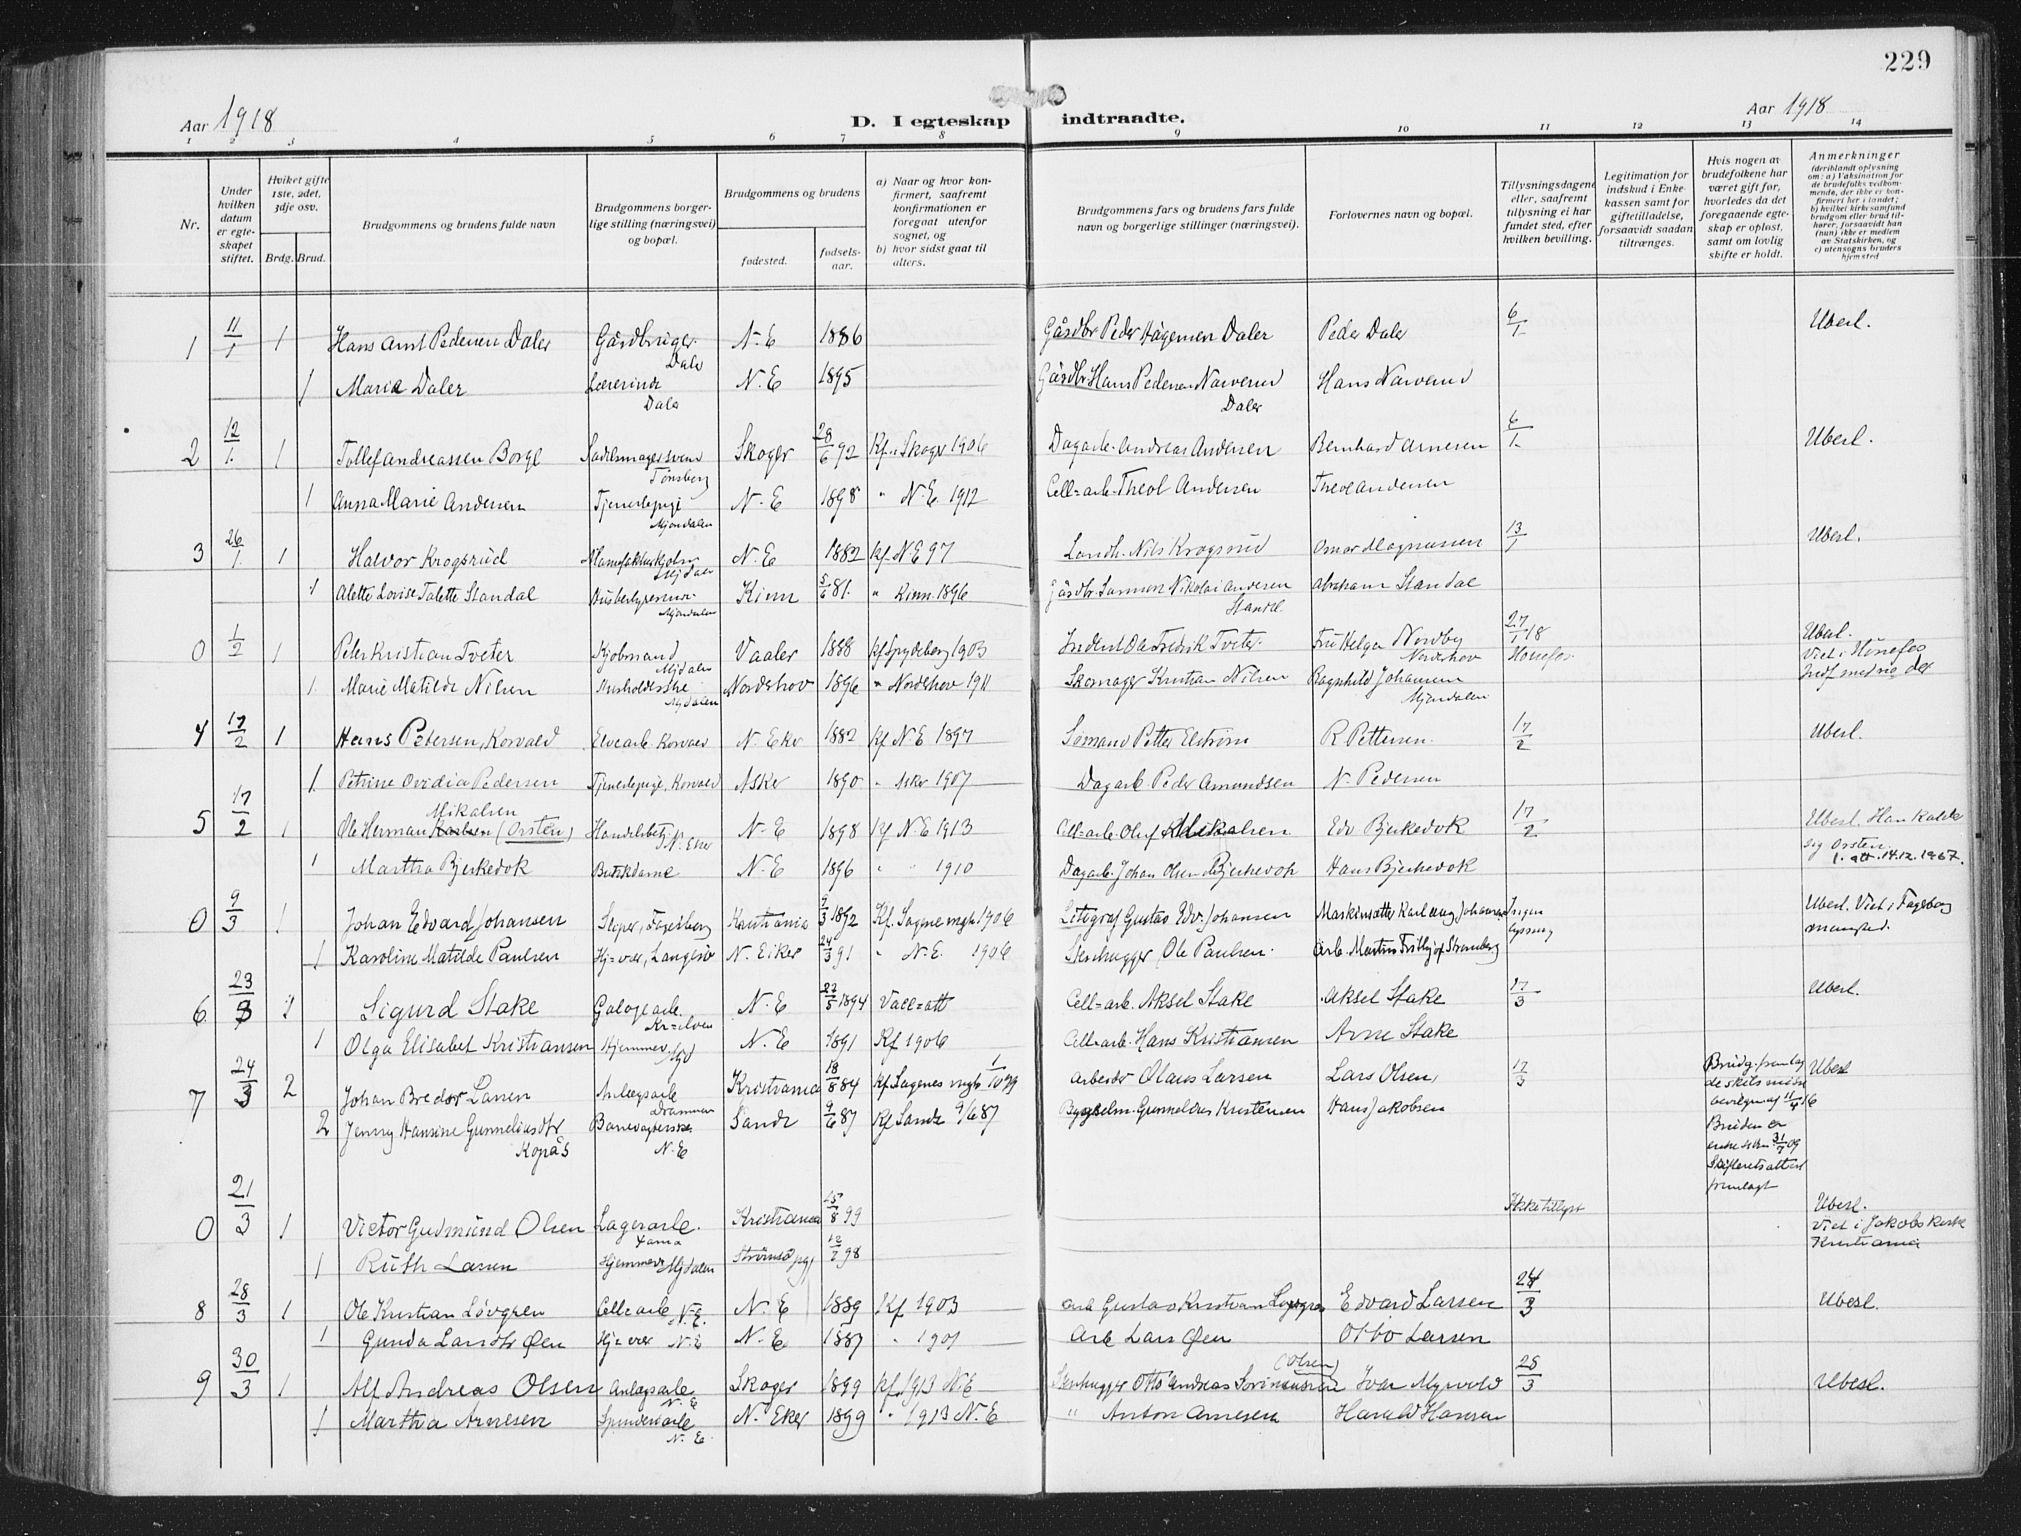 229
Aar 1918
D. I egteskap indtraadte.
Aar 1918
1 2 3 4 5 6 7 8 9 10 11 12 13 14
Nr.
Under hvilken datum er egteskapet stiftet.
Hviket gifte 1ste, 2det, 3dje osv.
Brdg. Brud.
Brudgommens og brudens fulde navn
Brudgommens borgerlige stilling (næringsvei) og bopæl.
Brudgommens og brudens
fødested.
fødselsaar.
a) Naar og hvor konfirmert, saafremt konfirmationen er foregaat utenfor sognet, og
b) hvor sidst gaat til alters.
Brudgommens fars og brudens fars fulde navn og borgerlige stillinger (næringsvei).
Forlovernes navn og bopæl.
Tillysningsdagene eller, saafremt tillysning ei har fundet sted, efter hvilken bevilling.
Legitimation for indskud i Enkekassen samt for giftetilladelse, forsaavidt saadan tiltrænges.
Hvis nogen av brudefolkene har været gift før, hvorledes da det foregaaende egteskap er opløst, samt om lovlig skifte er holdt.
Anmerkninger (deriblandt oplysning om: a) Vaksination for de brudefolks vedkommende, der ikke er konfirmert her i landet; b) hvilket kirkesamfund brudgom eller brud tilhører, forsaavidt han (hun) ikke er medlem av Statskirken, og c) utensogns bruders hjemsted
1 11/1 1 Hans Ant Pedersen Daler Gårdbruger Daler N. E 1886 Gårdbr Peder Hågensen Daler Peder Daler 6/1 Ubesl.
1 Marie Daler Lærerinde Daler N. E 1895 Gårdbr Hans Pedersen Narverud Daler Hans Narverud
2 12/1. 1 Tollef Andreassen Borge Sadelmagersvend Tønsberg Skoger 28/6 92 Kf. i Skoger 1906 Dagarb. Andreas Andersen Bernhard Arnesen 6/1. Ubesl.
1 Anna Marie Andersen Tjenestepige Mjøndalen N. E 1898 " N. E. 1912 Cell=arb. Theol Andersen Theol Andersen
3 26/1. 1 Halvor Krogsrud Mjdalen N. E 1882 Kf. N E 97 Landh. Nils Krogsrud Omar Magnussen 13/1 Ubesl.
1 Alette Lovise Talette Standal Mjøndalen Kinn 5/6 81. " Kinn. 1896 Gårdbr. Nikolai Andersen Standal Abraham Standal
0 1/2 1 Peter Kristian Tveter Kjøbmand Mjdalen Vaaler 1888 Kf Spydeberg 1903 Ole Fredrik Tveter Fru Helga Nordby Norderhov 27/1 18 Hønefos Ubesl. Viet i Hønefos
1. Marie Matilde Nilsen Mjdalen Norderhov 1896 " Norderhov 1911 Skomager Kristian Nilsen Ragnhild Johansen Mjøndalen
4 17/2 1 Hans Petersen, Korvald Elvearb. Korvald N. Eker 1882 Kf N. E 1897 Sømand Petter Elstrøm R Pettersen. 17/2 Ubesl.
1 Petrine Ovidia Pedersen Tjenestepige, Korvald Asker 1890 " Asker 1907 Dagarb. Peder Amundsen N. Pedersen
5 17/2 1 Ole Herman Mikalsen (Orsten) Handelsbetj. N. Eker N. E 1898 Kf N. E 1913 Cell=arb. Oluf Mikalsen Edv Bjerkedok 17/2 Ubesl. Han kalder sig Orsten l. att. 14.12.1967.
1 Martha Bjerkedok Butikdame N. E 1896 " " 1910 Dagarb. Johan Olsen Bjerkedok Hans Bjerkedok
0 9/3 1 Johan Edvard Johansen Fagerborg Kristiania 9/3 1892 Kf. Sagene mgh 1906 Litograf Gustav Edv. Johansen Maskinsætter Karl Aug Johansen Ingen lysning Ubesl. Viet i Fagerborg menighed.
1 Karoline Matilde Paulsen Hj=vær, Langesø N. Eiker 24/3 91 " N. E. 1906 Stenhugger Ole Paulsen. Arb. Martin Fritjof Strømberg
6 23/3 1 Sigurd Stake Galogearb. Kr=elven N. E 22/5 1894 Vacc=att Cell=arb. Aksel Stake Aksel Stake 17/3 Ubesl.
1 Olga Elisabet Kristiansen Hjemmev. Mjd N. E. 1891 Kf 1906 Cell=arb. Hans Kristiansen Arne Stake
7 24/3 2 Johan Bredor Larsen Anlægsarb. Drammen Kristiania 18/8 84 Kf. Sagenes mgh 1/10 99 Arbeider Olaus Larsen Lars Olsen, 17/3 Brudg. fremlagde skilsmisse bevilgn af 11/4 16 Ubesl
2 Jenny Hansine Gunneliusdtr Kopås N. E Sande 9/6 87 Kf Sande 9/6 87 Gunnelius Kristensen Hans Jakobsen Bruden er enke siden 31/7 09 Skifteretsattest fremlagt
0 21/3 1 Victor Gudmund Olsen Lagerarb. Kristiania 25/8 99 Ikke tillyst Ubesl. Viet i Jakobs kirke Kristiania
1 Ruth Larsen Hjemmev. Mjdalen Strømsø 12/2 98
8 28/3 1 Ole Kristian Løvgren Cell=arb N. E. N. E 1889 Kf 1903 Arb Gustav Kristian Løvgren Edvard Larsen 24/3 Ubesl.
1 Gunda Larsdtr Øen Hj=vær N. E N. E 1887 " 1901 Arb Lars Øen Otto Larsen
9 30/3 1 Alf Andreas Olsen Anlægsarb. N. E Skoger 1899 Kf. 1913 N. E Stenhugger Otto Andreas Sørinussen (Olsen) Ivar Myrvold 28/3 Ubesl.
1 Martha Arnesen Spinderiarb. N. E. N. Eker 1899 " 1913 N. E " Anton Arnesen Harald Hansen